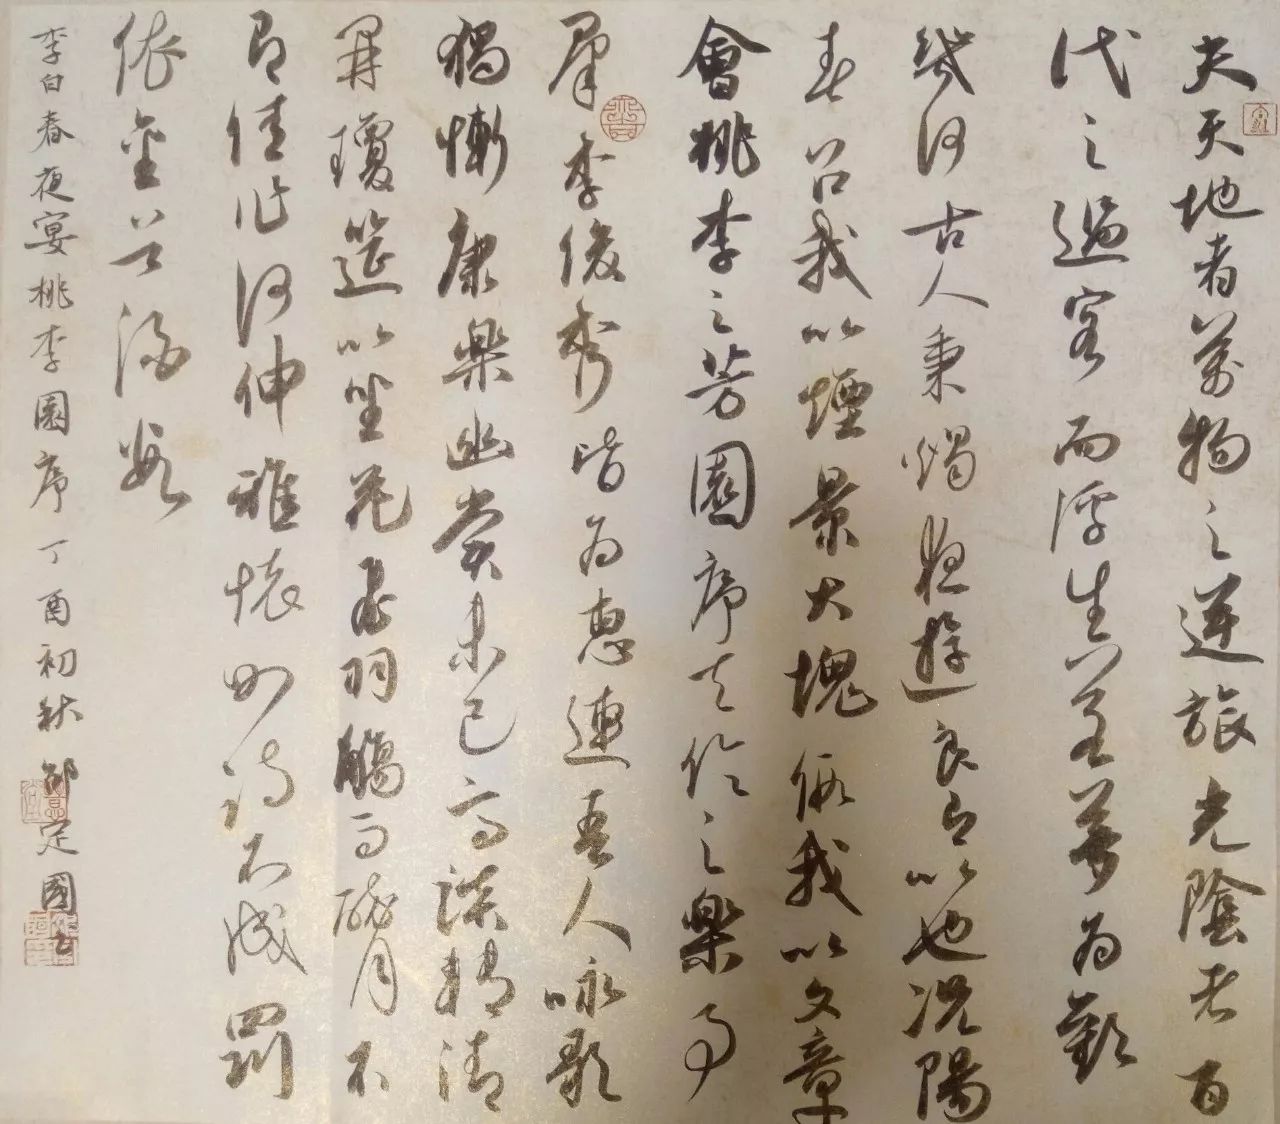 夫天地者萬物之逆旅光陰者百
代之過客而浮生若夢為歡
幾何古人秉燭夜遊良有以也況陽
春召我以煙景大塊假我以文章
會桃李之芳園序天倫之樂事
羣季俊秀皆為惠連吾人咏歌
獨慚康樂幽賞未已高談轉清
開瓊筵以坐花飛羽觴而醉月不
有佳作何伸雅懷如詩不成罰
依金谷酒數
李白春夜宴桃李園序丁酉初秋定國